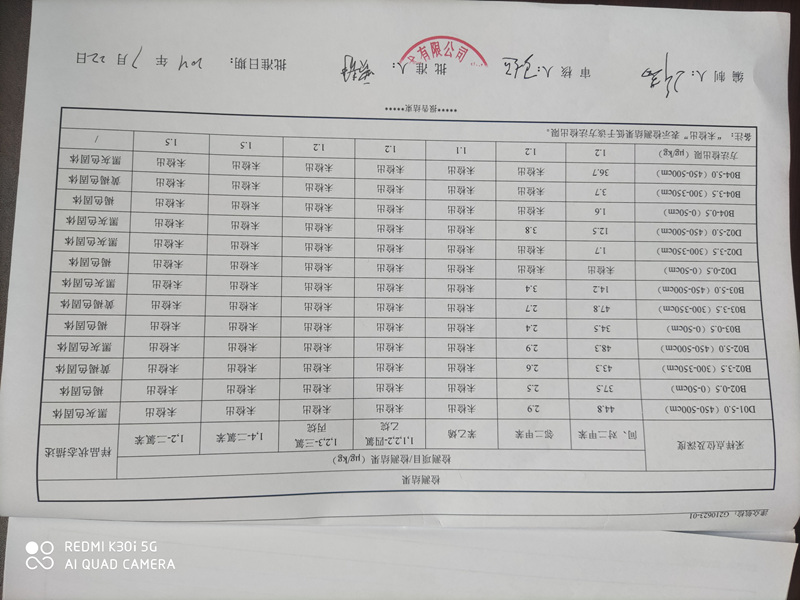 津众航检：G210623-01
检测结果
采样点位及深度 检测项目/检测结果（μg/kg） 样品状态描述
间、对二甲苯 邻二甲苯 苯乙烯 1,1,2,2-四氯乙烷 1,2,3-三氯丙烷 1,4-二氯苯 1,2-二氯苯
D01-5.0（450-500cm） 44.8 2.9 未检出 未检出 未检出 未检出 未检出 黑灰色固体
B02-0.5（0-50cm） 37.5 2.5 未检出 未检出 未检出 未检出 未检出 褐色固体
B02-3.5（300-350cm） 43.3 2.6 未检出 未检出 未检出 未检出 未检出 黄褐色固体
B02-5.0（450-500cm） 48.3 2.9 未检出 未检出 未检出 未检出 未检出 黑灰色固体
B03-0.5（0-50cm） 34.5 2.4 未检出 未检出 未检出 未检出 未检出 褐色固体
B03-3.5（300-350cm） 47.8 2.7 未检出 未检出 未检出 未检出 未检出 黄褐色固体
B03-5.0（450-500cm） 14.2 3.4 未检出 未检出 未检出 未检出 未检出 黑灰色固体
D02-0.5（0-50cm） 未检出 未检出 未检出 未检出 未检出 未检出 未检出 褐色固体
D02-3.5（300-350cm） 1.7 未检出 未检出 未检出 未检出 未检出 未检出 黄褐色固体
D02-5.0（450-500cm） 12.5 3.8 未检出 未检出 未检出 未检出 未检出 黑灰色固体
B04-0.5（0-50cm） 1.6 未检出 未检出 未检出 未检出 未检出 未检出 褐色固体
B04-3.5（300-350cm） 3.7 未检出 未检出 未检出 未检出 未检出 未检出 黄褐色固体
B04-5.0（450-500cm） 36.7 未检出 未检出 未检出 未检出 未检出 未检出 黑灰色固体
方法检出限（μg/kg） 1.2 1.2 1.1 1.2 1.2 1.5 1.5 /
备注：“未检出”表示检测结果低于该方法检出限。
*****报告结束*****
编 制 人： 审 核 人： 批 准 人： 批准日期： 年 7 月 22 日
有限公司
REDMI K30i 5G
AI QUAD CAMERA